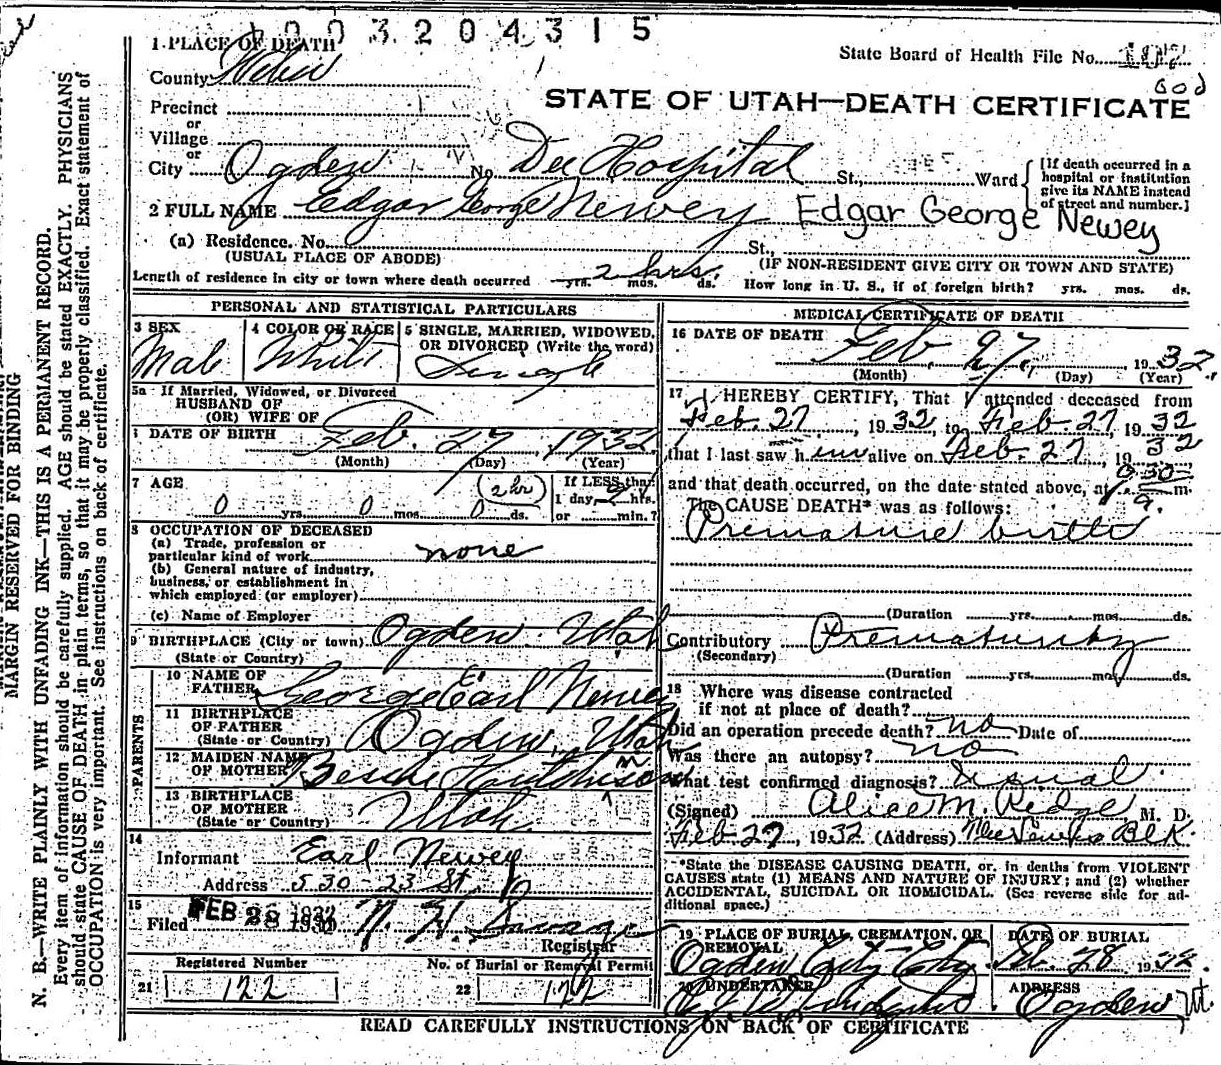 1003204315
1 PLACE OF DEATH
State Board of Health File No. 107
County Weber
STATE OF UTAH—DEATH CERTIFICATE
Precinct
or
Village
or
City Ogden No. Dee Hospital St., Ward
[If death occurred in a hospital or institution give its NAME instead of street and number.]
2 FULL NAME Edgar George Newey Edgar George Newey
(a) Residence. No. St.,
(USUAL PLACE OF ABODE) (IF NON-RESIDENT GIVE CITY OR TOWN AND STATE)
Length of residence in city or town where death occurred yrs. mos. ds. 2 hrs. How long in U. S., if of foreign birth? yrs. mos. ds.
PERSONAL AND STATISTICAL PARTICULARS
3 SEX Male
4 COLOR OR RACE White
5 SINGLE, MARRIED, WIDOWED, OR DIVORCED (Write the word) Single
5a If Married, Widowed, or Divorced
HUSBAND OF
(OR) WIFE OF
6 DATE OF BIRTH Feb. 27, 1932
(Month) (Day) (Year)
7 AGE 0 yrs. 0 mos. 0 ds. (2 hr) If LESS than 1 day, 2 hrs. or min.?
8 OCCUPATION OF DECEASED
(a) Trade, profession or particular kind of work none
(b) General nature of industry, business, or establishment in which employed (or employer)
(c) Name of Employer
9 BIRTHPLACE (City or town) Ogden. Utah
(State or Country)
PARENTS
10 NAME OF FATHER George Earl Newey
11 BIRTHPLACE OF FATHER (State or Country) Ogden, Utah
12 MAIDEN NAME OF MOTHER Bessie Hutchinson
13 BIRTHPLACE OF MOTHER (State or Country) Utah.
14 Informant Earl Newey
Address 530 23 St.
15 Filed FEB 28 1932 N. H. Savage
Registrar
Registered Number
21 122
No. of Burial or Removal Permit
22 122
MEDICAL CERTIFICATE OF DEATH
16 DATE OF DEATH Feb. 27, 1932
(Month) (Day) (Year)
17 I HEREBY CERTIFY, That I attended deceased from
Feb. 27, 1932, to Feb. 27, 1932
that I last saw him alive on Feb. 27, 1932
and that death occurred, on the date stated above, at 9:30 a. m.
The CAUSE DEATH* was as follows:
Premature birth
(Duration yrs. mos. ds.
Contributory Prematurity
(Secondary)
(Duration yrs. mos. ds.
18 Where was disease contracted
if not at place of death?
Did an operation precede death? no Date of
Was there an autopsy? no
What test confirmed diagnosis? Usual.
(Signed) Alice M. Ridge M. D.
Feb 27, 1932 (Address) Blk.
*State the DISEASE CAUSING DEATH, or, in deaths from VIOLENT
CAUSES state (1) MEANS AND NATURE OF INJURY; and (2) whether
ACCIDENTAL, SUICIDAL OR HOMICIDAL. (See reverse side for ad-
ditional space.)
19 PLACE OF BURIAL, CREMATION, OR REMOVAL Ogden City
DATE OF BURIAL Feb. 28 1932.
20 UNDERTAKER
ADDRESS Ogden Ut.
READ CAREFULLY INSTRUCTIONS ON BACK OF CERTIFICATE
MARGIN RESERVED FOR BINDING
N. B.—WRITE PLAINLY WITH UNFADING INK—THIS IS A PERMANENT RECORD.
Every item of information should be carefully supplied. AGE should be stated EXACTLY. PHYSICIANS
should state CAUSE OF DEATH in plain terms, so that it may be properly classified. Exact statement of
OCCUPATION is very important. See instructions on back of certificate.